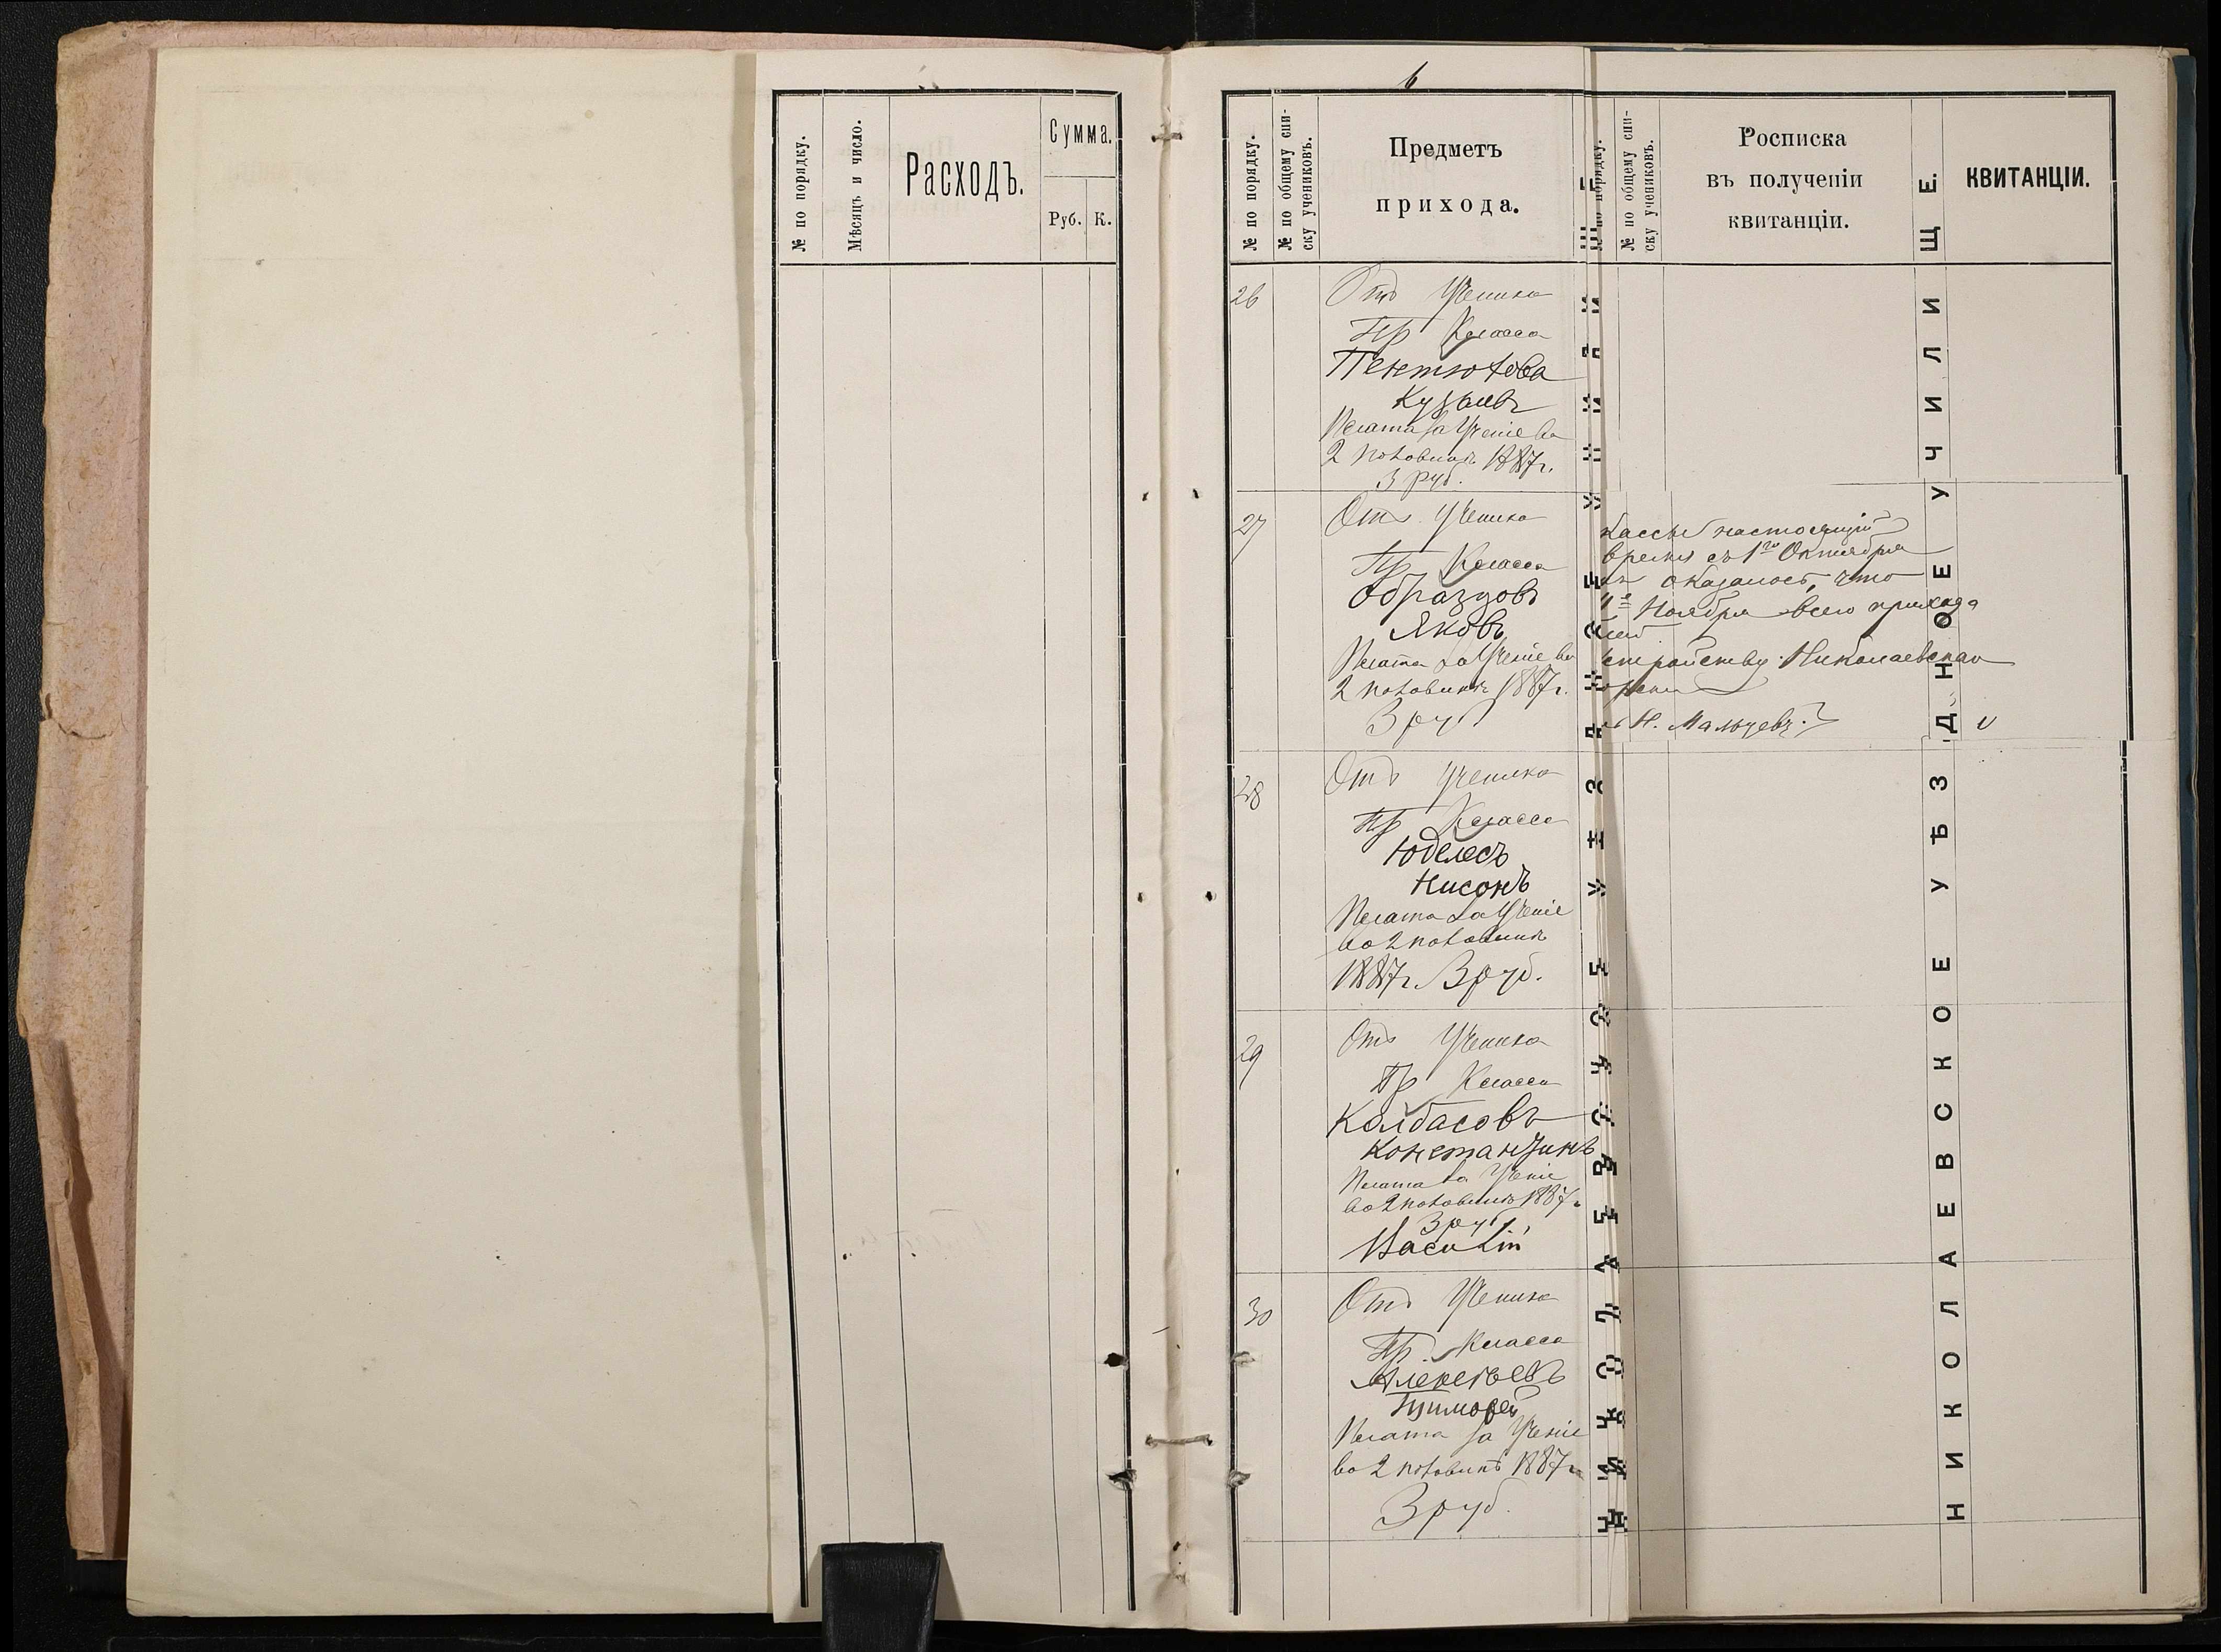 № по порядку.
Мѣсяцъ и число.
Расходъ.
Сумма.
Руб. К.
6
№ по порядку.
№ по общему спи-
ску учениковъ.
Предметъ
прихода.
26
Отъ Ученика
Пр Класса
Пентюхова
Плата за Ученіе во
2 половинѣ 1887 г.
3 руб.
27
Отъ Ученика
Пр Класса
Образцовъ
Яковъ
Плата за Ученіе во
2 половинѣ 1887 г.
3 ру
28
Отъ Ученика
Пр Класса
Юделесъ
Нисонъ
Плата за Ученіе
во 2 половинѣ
1887 г. 3 руб.
29
Отъ Ученика
Пр Класса
Колбасовъ
Константинъ
Плата за Ученіе
во 2 половинѣ 1887 г
3 руб.
30
Отъ Ученика
Пр. Класса
Алексѣевъ
Тимофей
Плата за Ученіе
во 2 половинѣ 1887 г
3 руб.
№ по общему спи-
ску учениковъ.
Росписка
въ полученіи
квитанціи.
КВИТАНЦІИ.
кассы настоящій
время съ 1го Октября
оказалось, что
1е Ноября всего прихода
Николаевскаго
Н. Мальцевъ.
НИКОЛАЕВСКОЕ УѢЗДНОЕ УЧИЛИЩЕ.